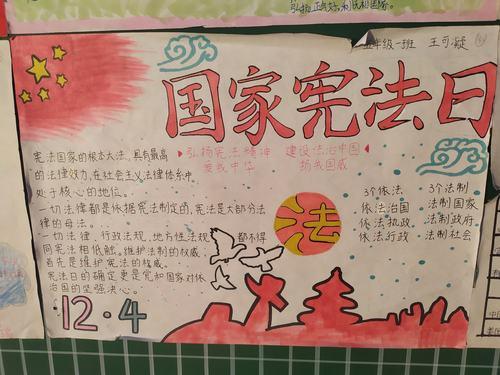 弘扬正义好,利民和国家。
五年级一班 王可凝
国家宪法日
宪法国家的根本大法,具有最高
的法律效力,在社会主义法律体系中
处于核心的地位。
一切法律都是依据宪法制定的,宪法是大部分法
律的母法。
一切法律,行政法规,地方性法规 都不得
同宪法相低触。维护法制的权威;
首先是维护宪法的权威。
宪法日的确定更是党和国家对依
治国的坚强决心。
12·4
弘扬宪法精神 建设法治中国
爱我中华 扬我国威
法
3个依法
依法治国
依法执政
依法行政
3个法制
法制国家
法制政府
法制社会